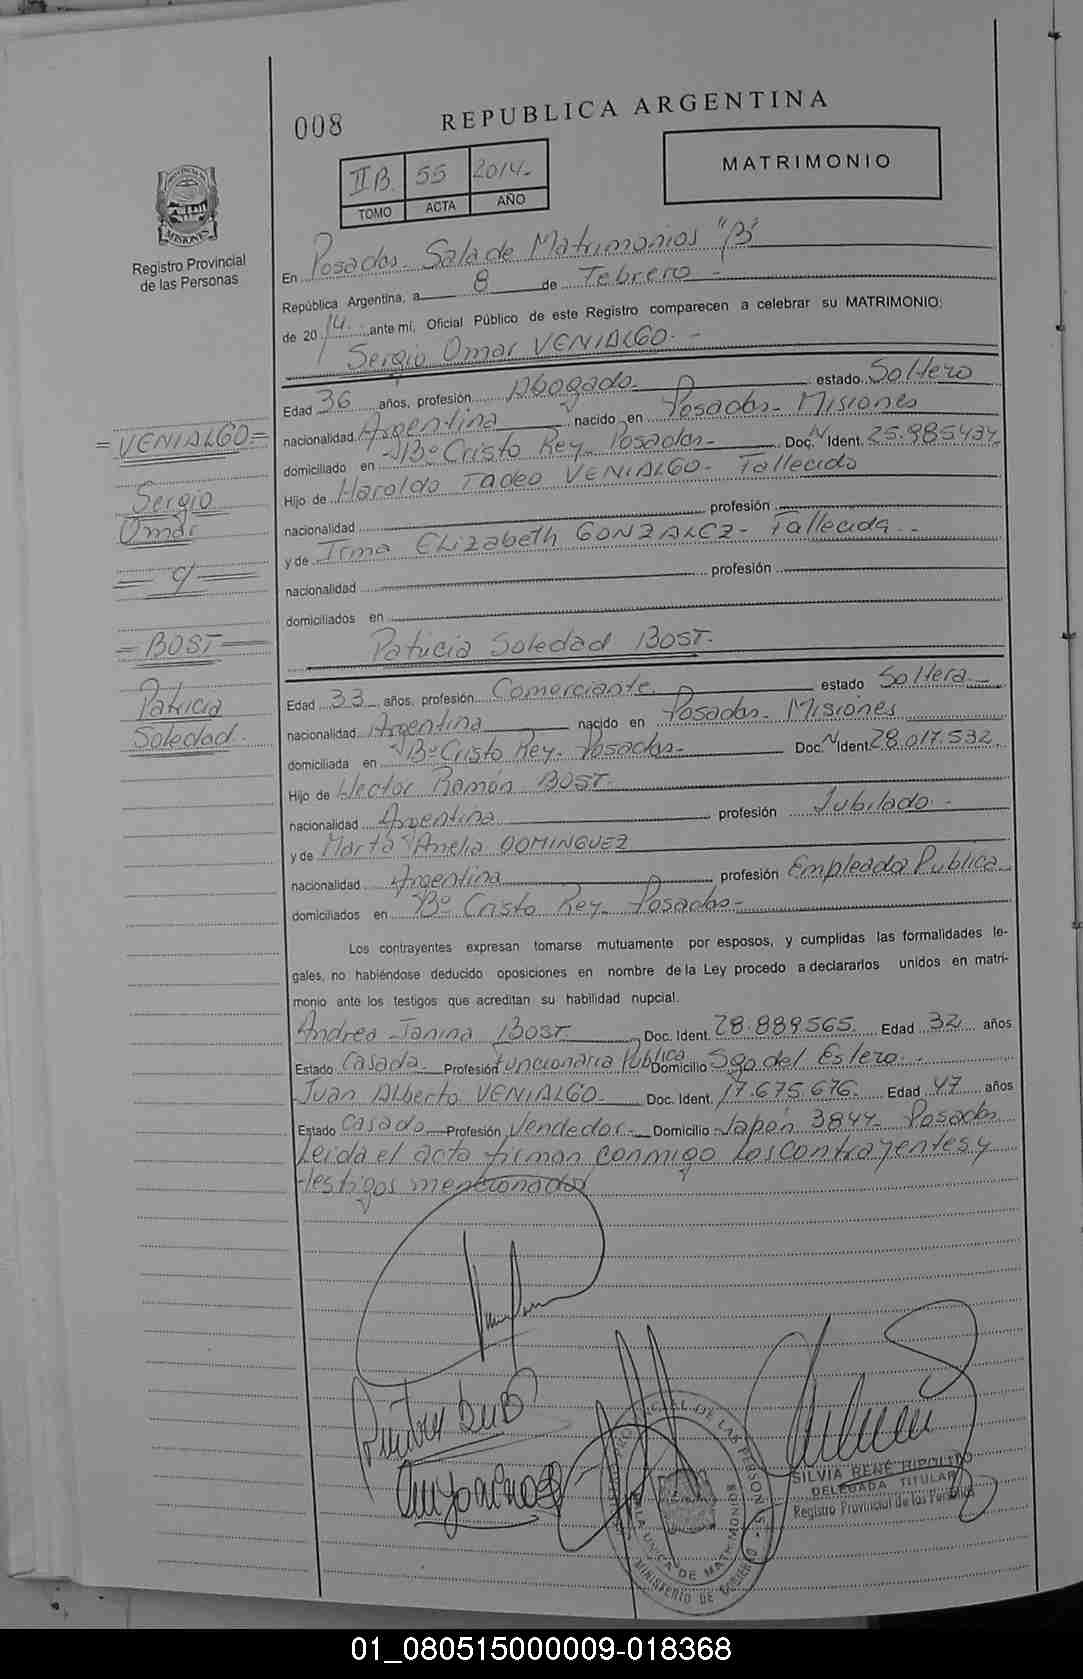 008
REPUBLICA ARGENTINA
MATRIMONIO
II B. 55 2014-
TOMO ACTA AÑO
PROVINCIA
MISIONES
Registro Provincial
de las Personas
En Posadas- Sala de Matrimonios "B"
República Argentina, a 8 de Febrero -
de 2014. ante mí, Oficial Público de este Registro comparecen a celebrar su MATRIMONIO:
Sergio Omar VENIALGO. -
Edad 36 años, profesión Abogado estado Soltero
nacionalidad Argentina nacido en Posadas- Misiones
domiciliado en Bº Cristo Rey- Posadas- Doc. N Ident. 25.985.434
Hijo de Haroldo Tadeo VENIALGO- Fallecido
nacionalidad profesión
y de Irma Elizabeth GONZALEZ- Fallecida -
nacionalidad profesión
domiciliados en
Patricia Soledad BOST.
Edad 33 años, profesión Comerciante estado Soltera
nacionalidad Argentina nacido en Posadas- Misiones
domiciliada en Bº Cristo Rey- Posadas- Doc. N Ident. 28.017.532
Hijo de Hector Ramón BOST.
nacionalidad Argentina profesión Jubilado -
y de Marta Amelia DOMINGUEZ
nacionalidad Argentina profesión Empleada Publica
domiciliados en Bº Cristo Rey- Posadas-
= VENIALGO =
Sergio
Omar
= c/ =
= BOST =
Patricia
Soledad.
Los contrayentes expresan tomarse mutuamente por esposos, y cumplidas las formalidades le-
gales, no habiéndose deducido oposiciones en nombre de la Ley procedo a declararlos unidos en matri-
monio ante los testigos que acreditan su habilidad nupcial.
Andrea Janina BOST Doc. Ident. 28.889.565. Edad 32 años
Estado Casada Profesión Funcionaria Publica Domicilio Sgo del Estero -
Juan Alberto VENIALGO Doc. Ident. 17.675.676. Edad 47 años
Estado Casado Profesión Vendedor- Domicilio Japón 3844- Posadas
Leida el acta firman conmigo los contrayentes y
testigos mencionados
SILVIA RENE HIPOLITO
DELEGADA TITULAR
Registro Provincial de las Personas
MINISTERIO DE GOBIERNO
01_080515000009-018368